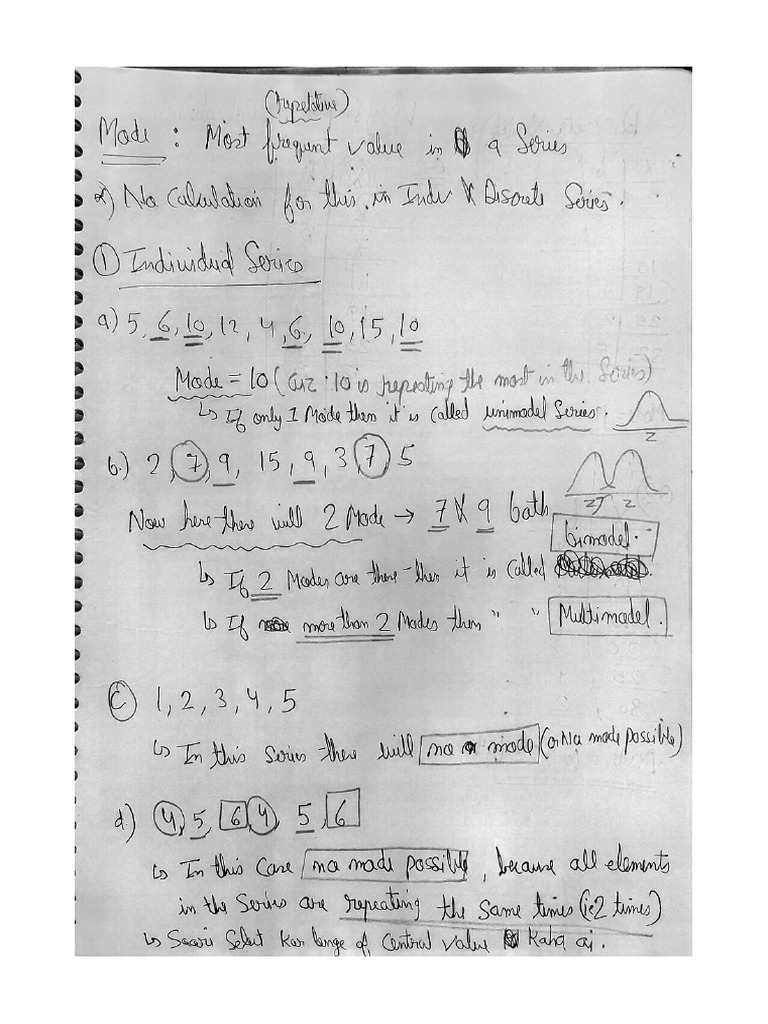 (repetative)
Mode : Most frequent value in a Series
*) No Calculation for this in Indv & Discrete Series.
① Individual Series
a.) 5, 6, 10, 12, 4, 6, 10, 15, 10
Mode = 10 ( 10 is repeating the most in the Series)
↳ If only 1 Mode then it is called unimodel Series.
Z
b.) 2, 7, 9, 15, 9, 3 7 5
Now here there will 2 Mode → 7 & 9 both
Z Z
bimodel.
↳ If 2 Modes are there then it is called
↳ If more than 2 Modes then " " Multimodel.
c 1, 2, 3, 4, 5
↳ In this series there will no mode (or No mode possible)
d.) 4, 5, 6 4, 5, 6
↳ In this Case no mode possible, because all elements
in the Series are repeating the same times (ie 2 times)
↳ Saari Select Kar lenge of Central Value Kaha